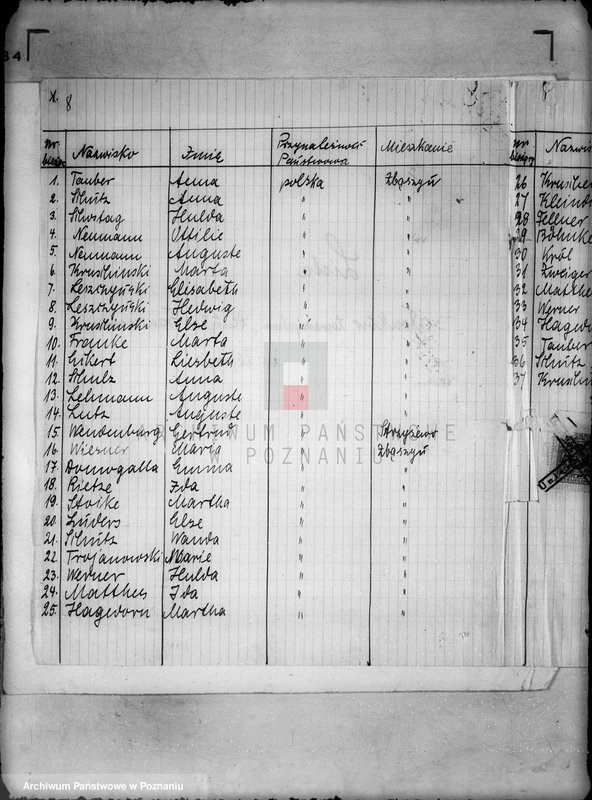 A. 8
Nr. bieżący Nazwisko Imię Przynależność Państwowa Mieszkanie
1. Tauber Anna polska Zbąszyń
2. Schütz Anna " "
3. Hulda " "
4. Neumann Ottilie " "
5. Neumann Auguste " "
6. Kruschinski Marta " "
7. Leszczyński Elisabeth " "
8. Leszczyński Hedwig " "
9. Kruschinski Else " "
10. Franke Marta " "
11. Eikert Liesbeth " "
12. Schulz Anna " "
13. Lehmann Auguste " "
14. Lutz Auguste " "
15. Wendenburg Gertrud " Strzyżewo
16. Wiesner Maria " Zbąszyń
17. Domogalla Emma " "
18. Rietze Ida " "
19. Stoike Martha " "
20. Lüders Else " "
21. Schütz Wanda " "
22. Trojanowski Marie " "
23. Werner Hulda " "
24. Matthes Ida " "
25. Hagedorn Martha " "
8
Nr. bieżący Nazw
26 Krusch
27 Kleind
28 Fellner
29 Böhnke
30 Król
31 Zweiger
32 Matthe
33 Werner
34 Hagedo
35 Tauber
36 Schütz
37 Krusch
84
ARCHIWUM PAŃSTWOWE
W POZNANIU
Archiwum Państwowe w Poznaniu